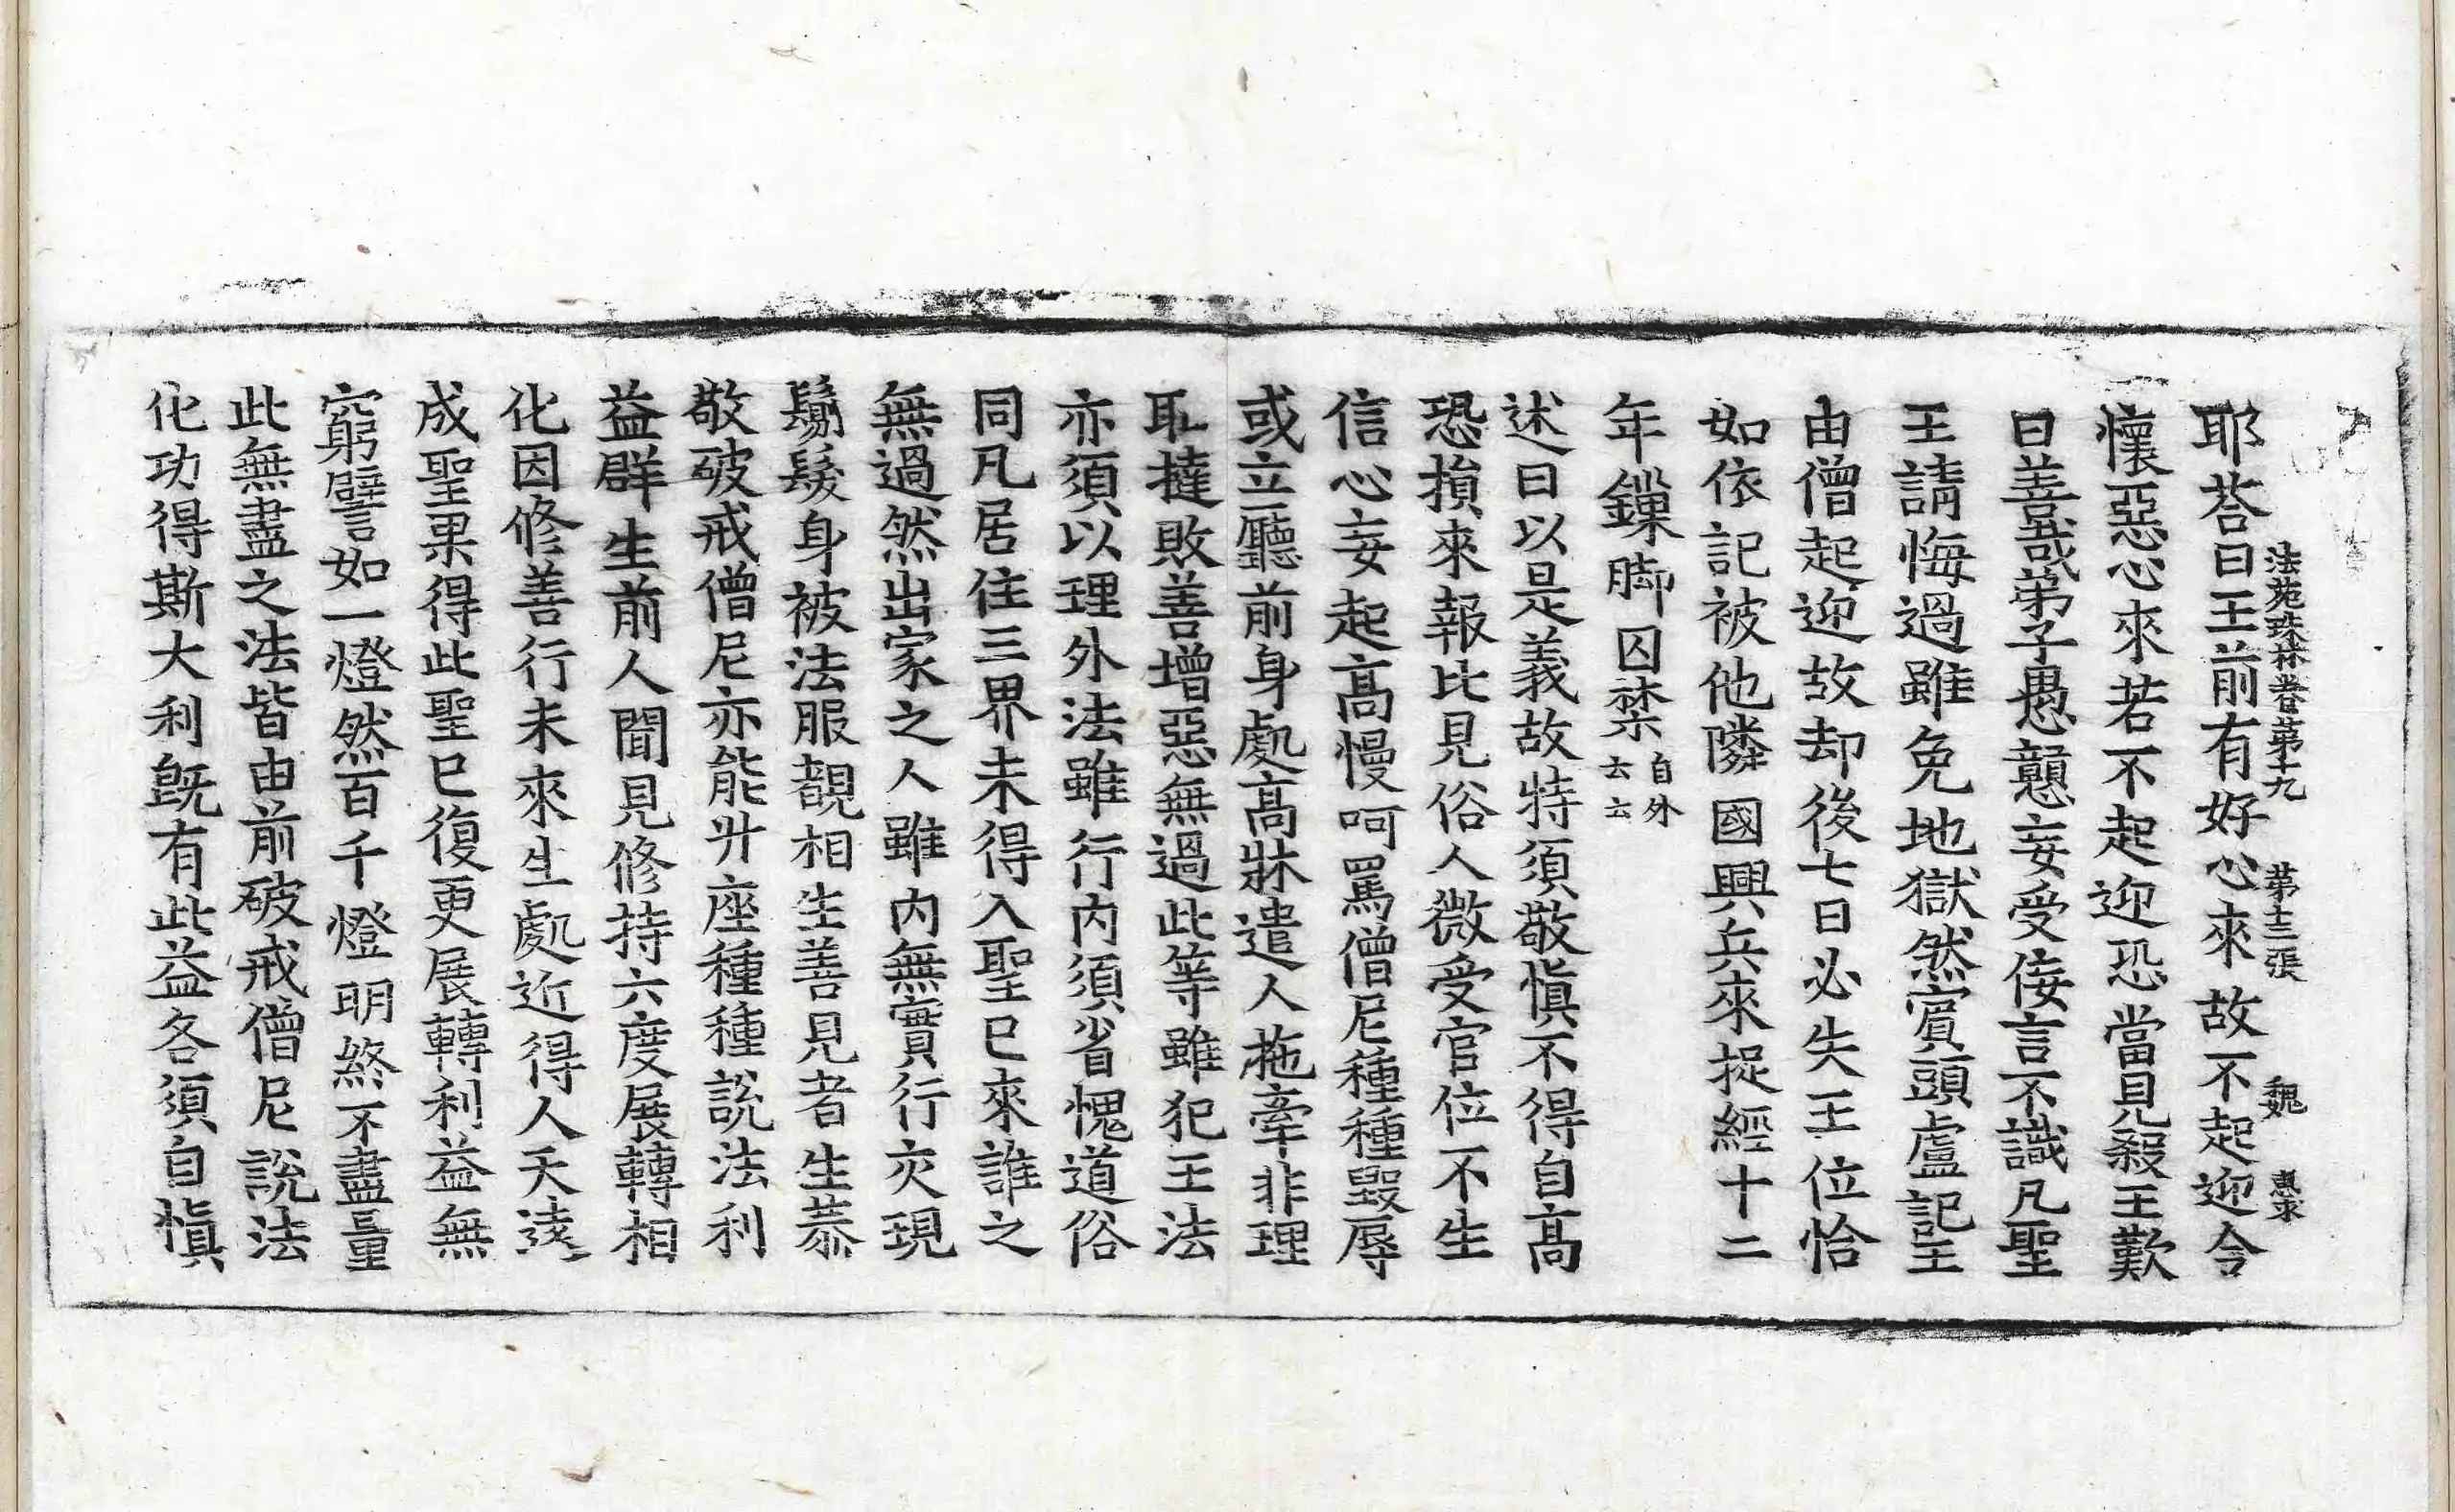 法苑珠林卷第十九 第十三張 魏 惠求
耶荅曰王前有好心來故不起迎令
懷惡心來若不起迎恐當見殺王歎
曰善哉弟子愚戇妄受佞言不識凡聖
王請悔過雖免地獄然賓頭盧記王
由僧起迎故却後七日必失王位恰
如依記被他隣國興兵來捉經十二
年鏁脚囚禁自外云云
述曰以是義故特須敬慎不得自高
恐損來報比見俗人微受官位不生
信心妄起高慢呵罵僧尼種種毀辱
或立廳前身處高牀遣人拖牽非理
恥撻敗善增惡無過此等雖犯王法
亦須以理外法雖行内須省愧道俗
同凡居住三界未得入聖已來誰之
無過然出家之人雖内無實行灾現
鬀髮身被法服覩相生善見者生恭
敬破戒僧尼亦能升座種種說法利
益群生前人聞見修持六度展轉相
化因修善行未來生處近得人天遠
成聖果得此聖已復更展轉利益無
窮譬如一燈然百千燈明終不盡量
此無盡之法皆由前破戒僧尼說法
化功得斯大利旣有此益各須自慎